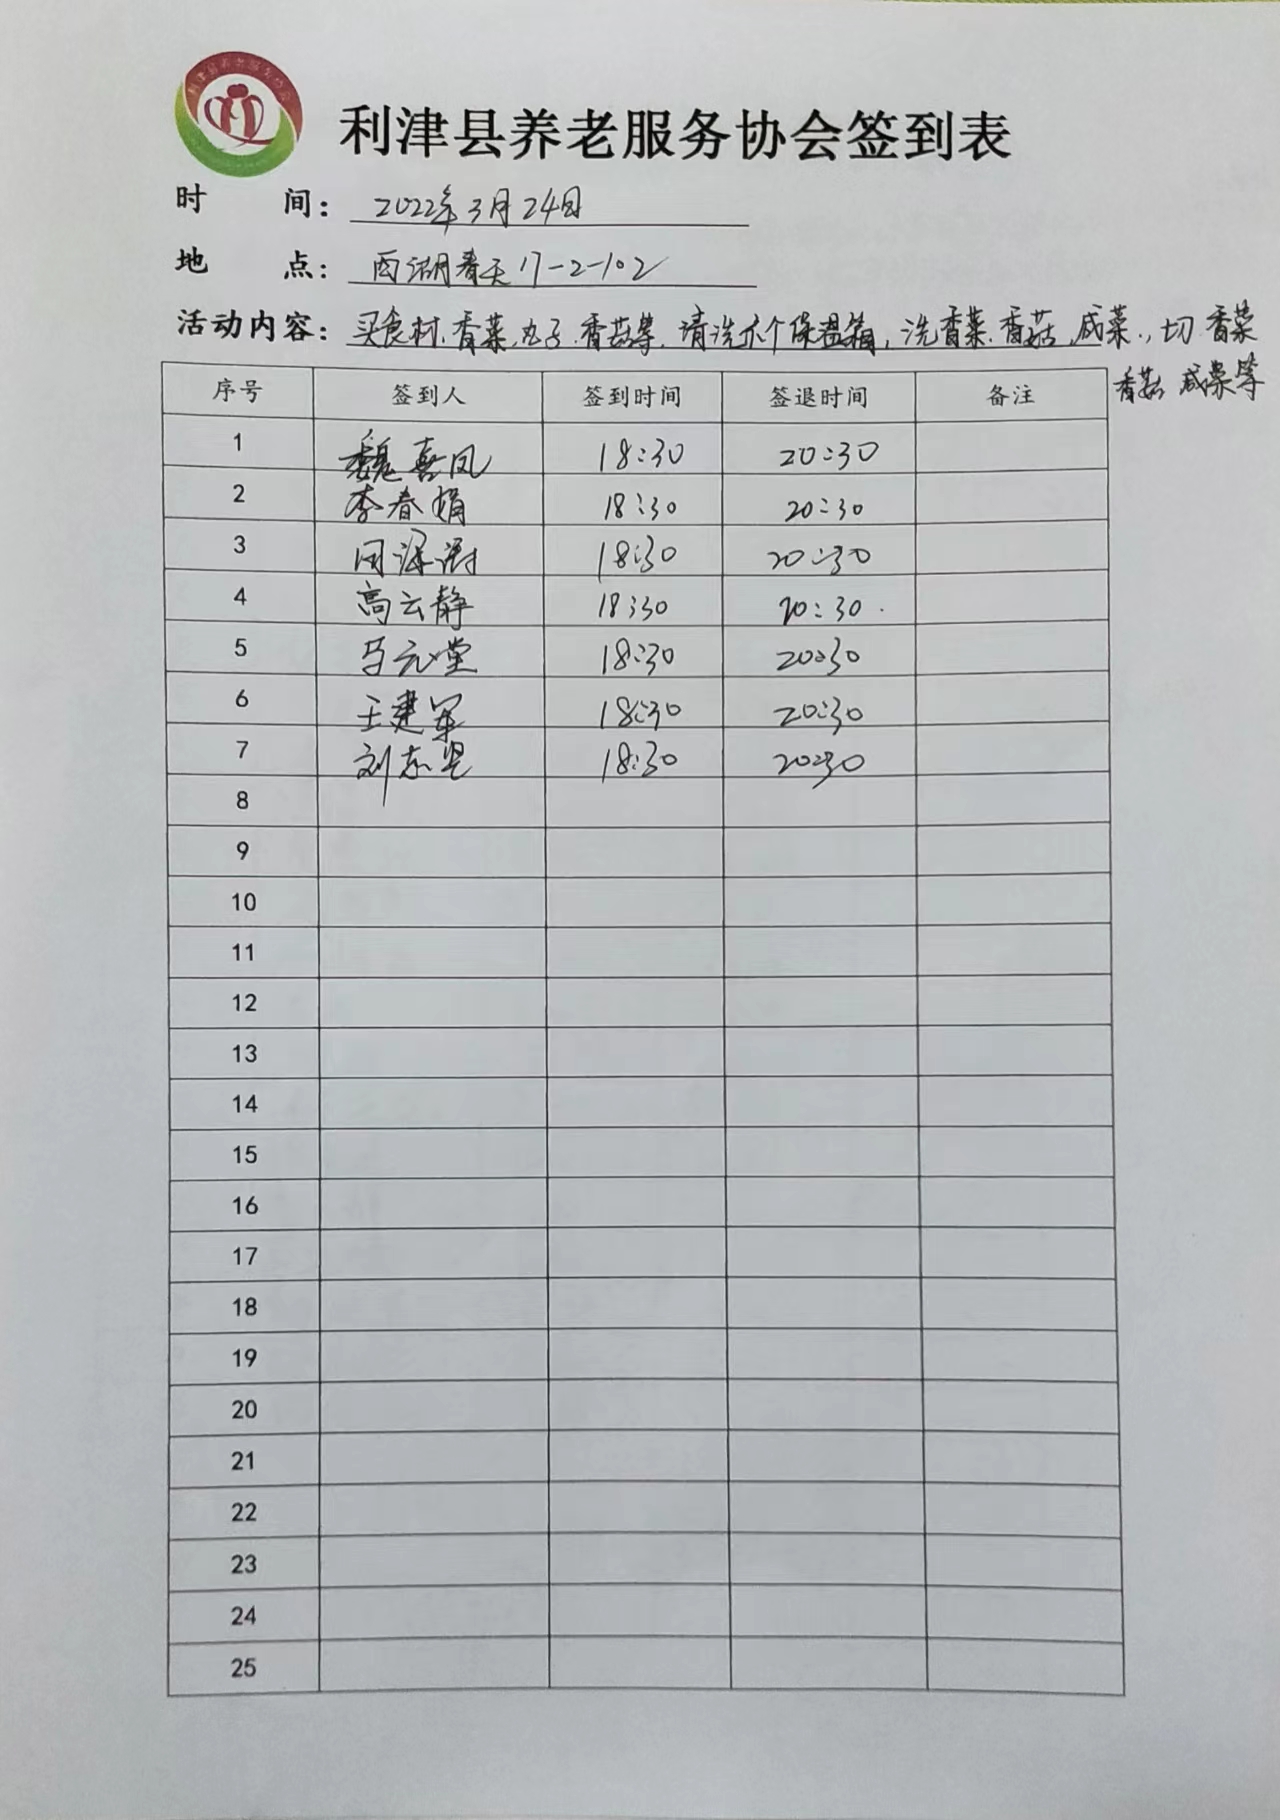 利津县养老服务协会
利津县养老服务协会签到表
时 间：2022年3月24日
地 点：西湖春天17-2-102
活动内容：买食材.香菜.丸子.香菇等.请洗个保温箱，洗香菜.香菇.咸菜.，切.香菜
香菇 咸菜等
序号 签到人 签到时间 签退时间 备注
1 魏喜凤 18:30 20:30
2 李春娟 18:30 20:30
3 18:30 20:30
4 高云静 18:30 20:30
5 马元堂 18:30 20:30
6 王建军 18:30 20:30
7 刘东 18:30 20:30
8
9
10
11
12
13
14
15
16
17
18
19
20
21
22
23
24
25